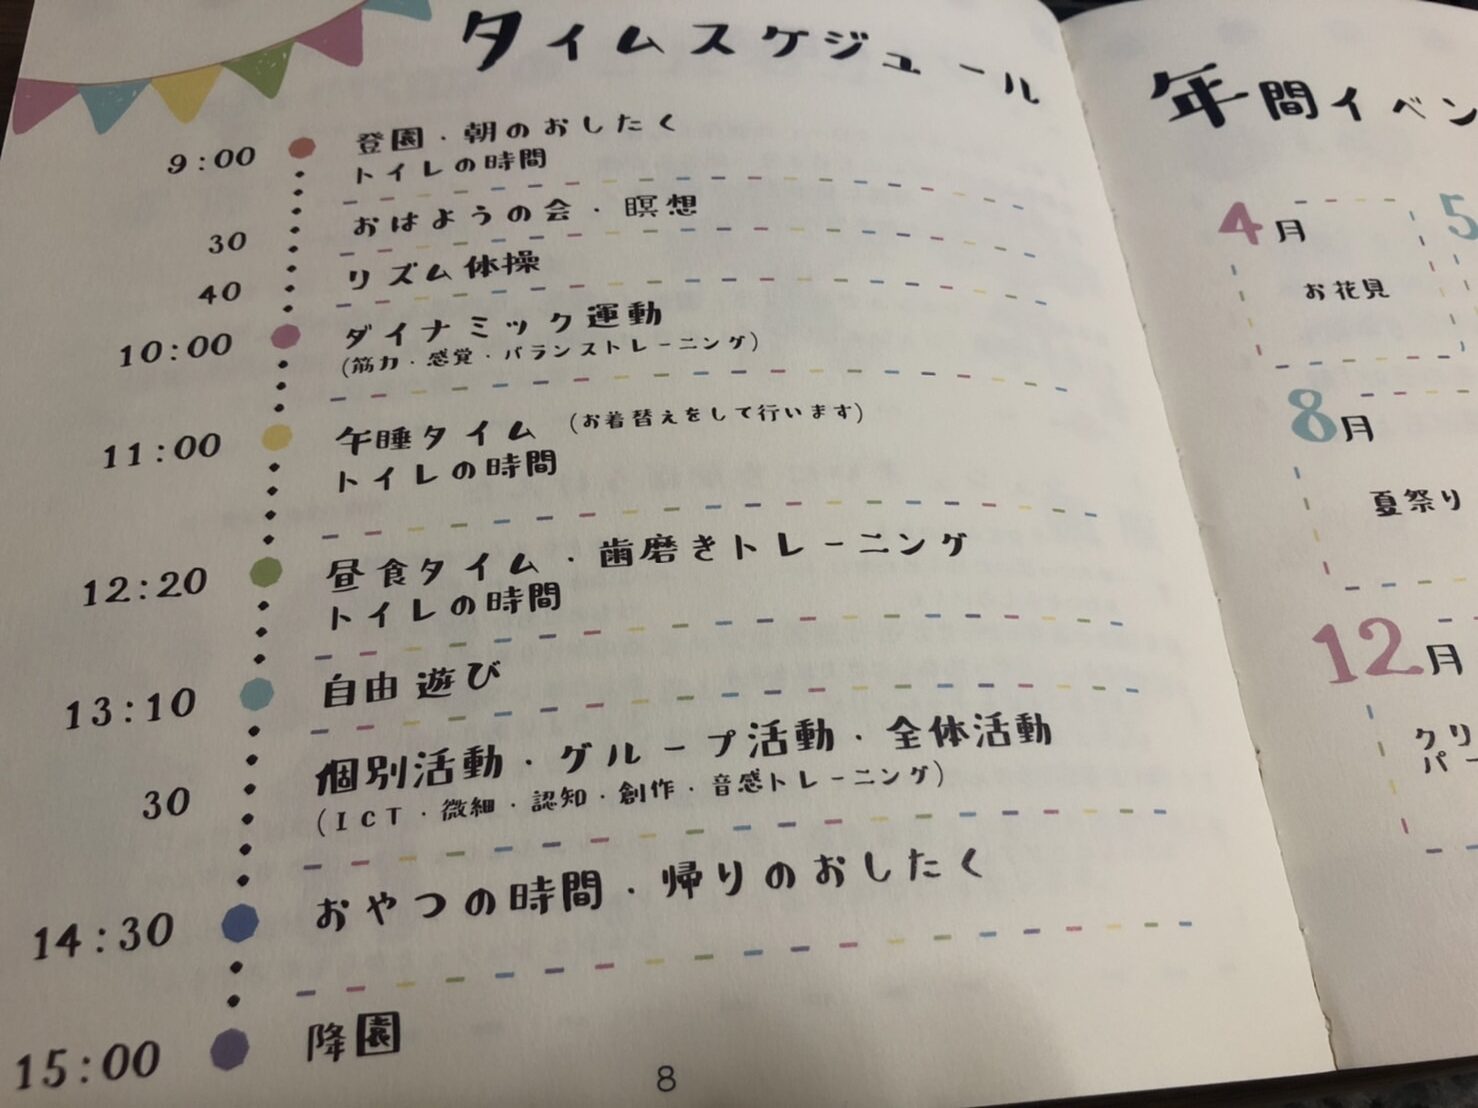 タイムスケジュール
9:00 登園・朝のおしたく
トイレの時間
30 おはようの会・瞑想
40 リズム体操
10:00 ダイナミック運動
(筋力・感覚・バランストレーニング)
11:00 午睡タイム (お着替えをして行います)
トイレの時間
12:20 昼食タイム・歯磨きトレーニング
トイレの時間
13:10 自由遊び
30 個別活動・グループ活動・全体活動
(ICT・微細・認知・創作・音感トレーニング)
14:30 おやつの時間・帰りのおしたく
15:00 降園
8
年間イベン
4月 5
お花見
8月
夏祭り
12月
クリ
パー